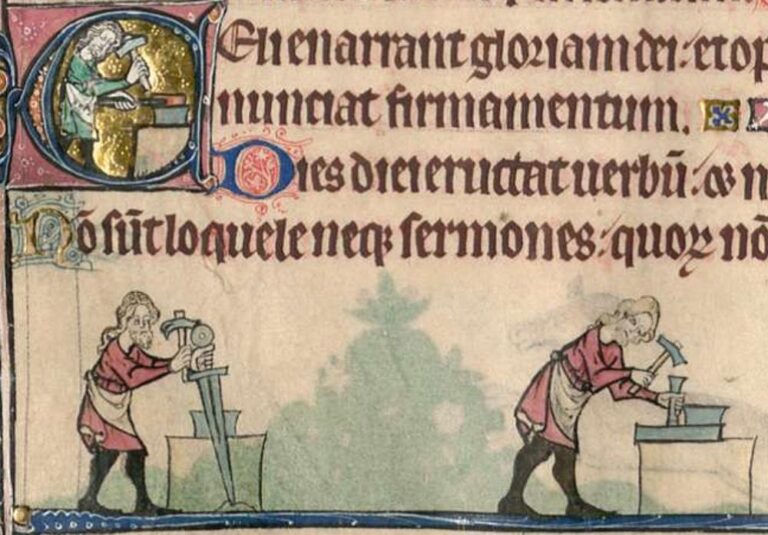 Celi enarrant gloriam dei: et op
nunciat firmamentum.
Dies diei eructat uerbū: & n
Nō sūt loquele neqꝫ sermones: quoꝝ nō